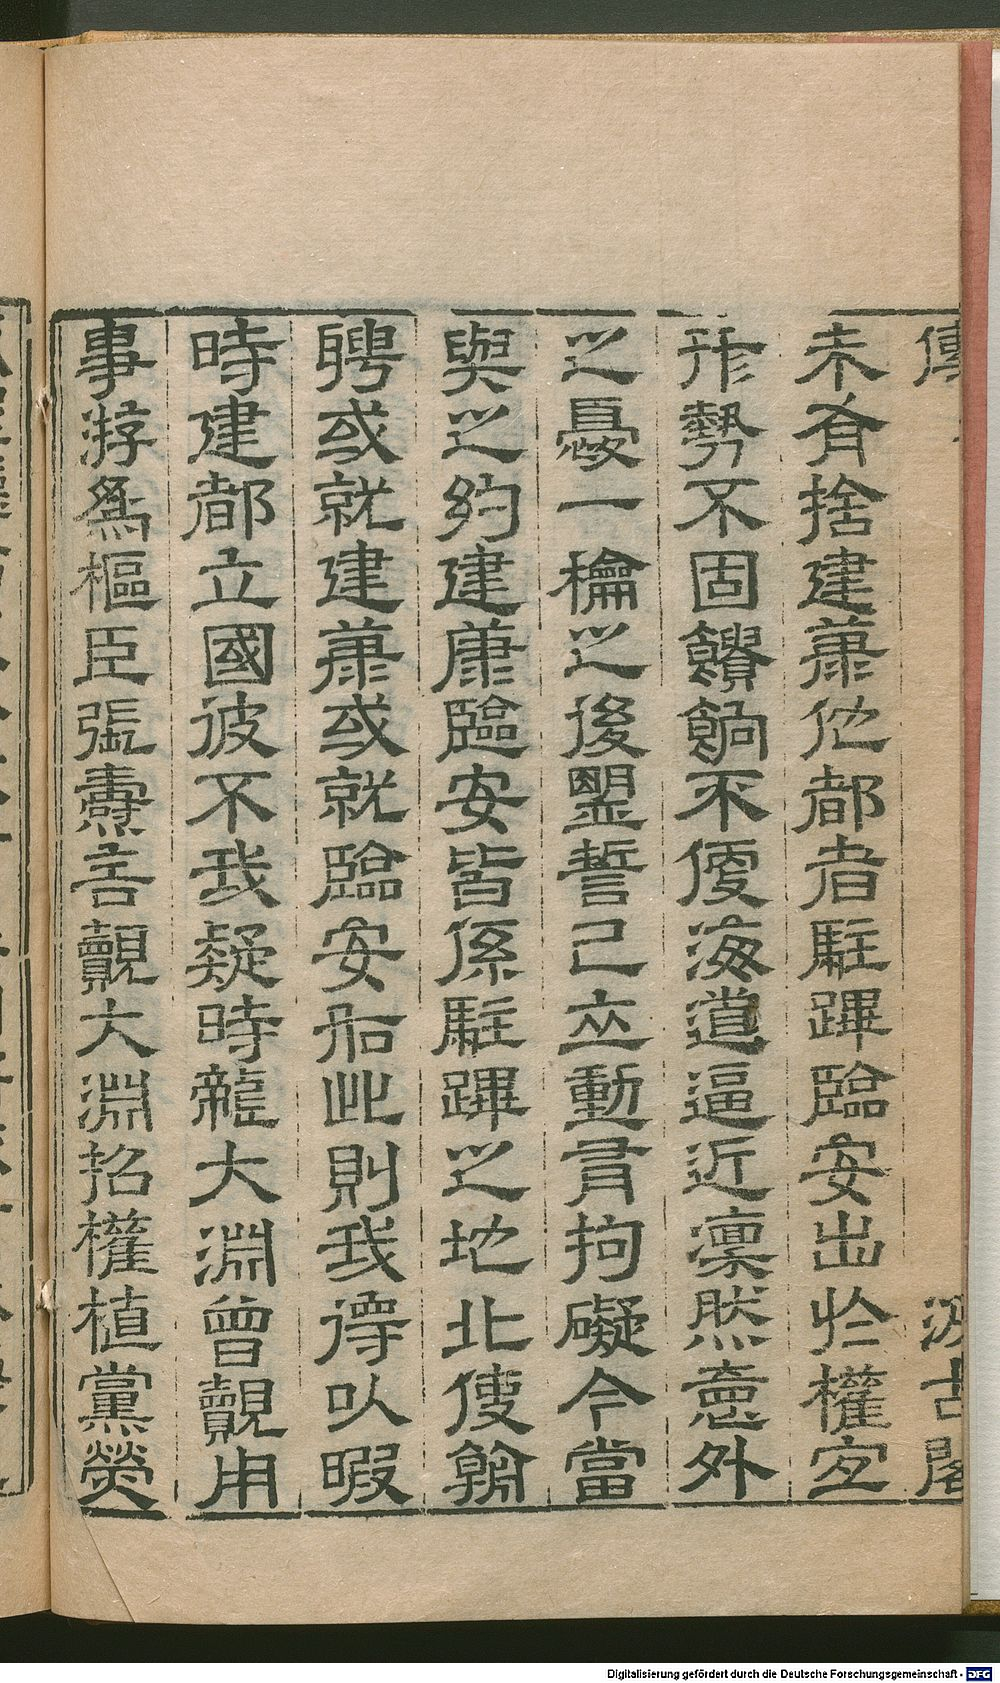 傳
汲古閣
未有舍建康他都者駐蹕臨安出於權宜
形勢不固饋餉不便海道逼近凜然意外
之憂一檜之後盟誓已立動有拘礙今當
與之約建康臨安皆係駐蹕之地北使朝
聘或就建康或就臨安如此則我得以暇
時建都立國彼不我疑時龍大淵曾覿用
事游爲樞臣張燾言覿大淵招權植黨熒
Digitalisierung gefördert durch die Deutsche Forschungsgemeinschaft - DFG